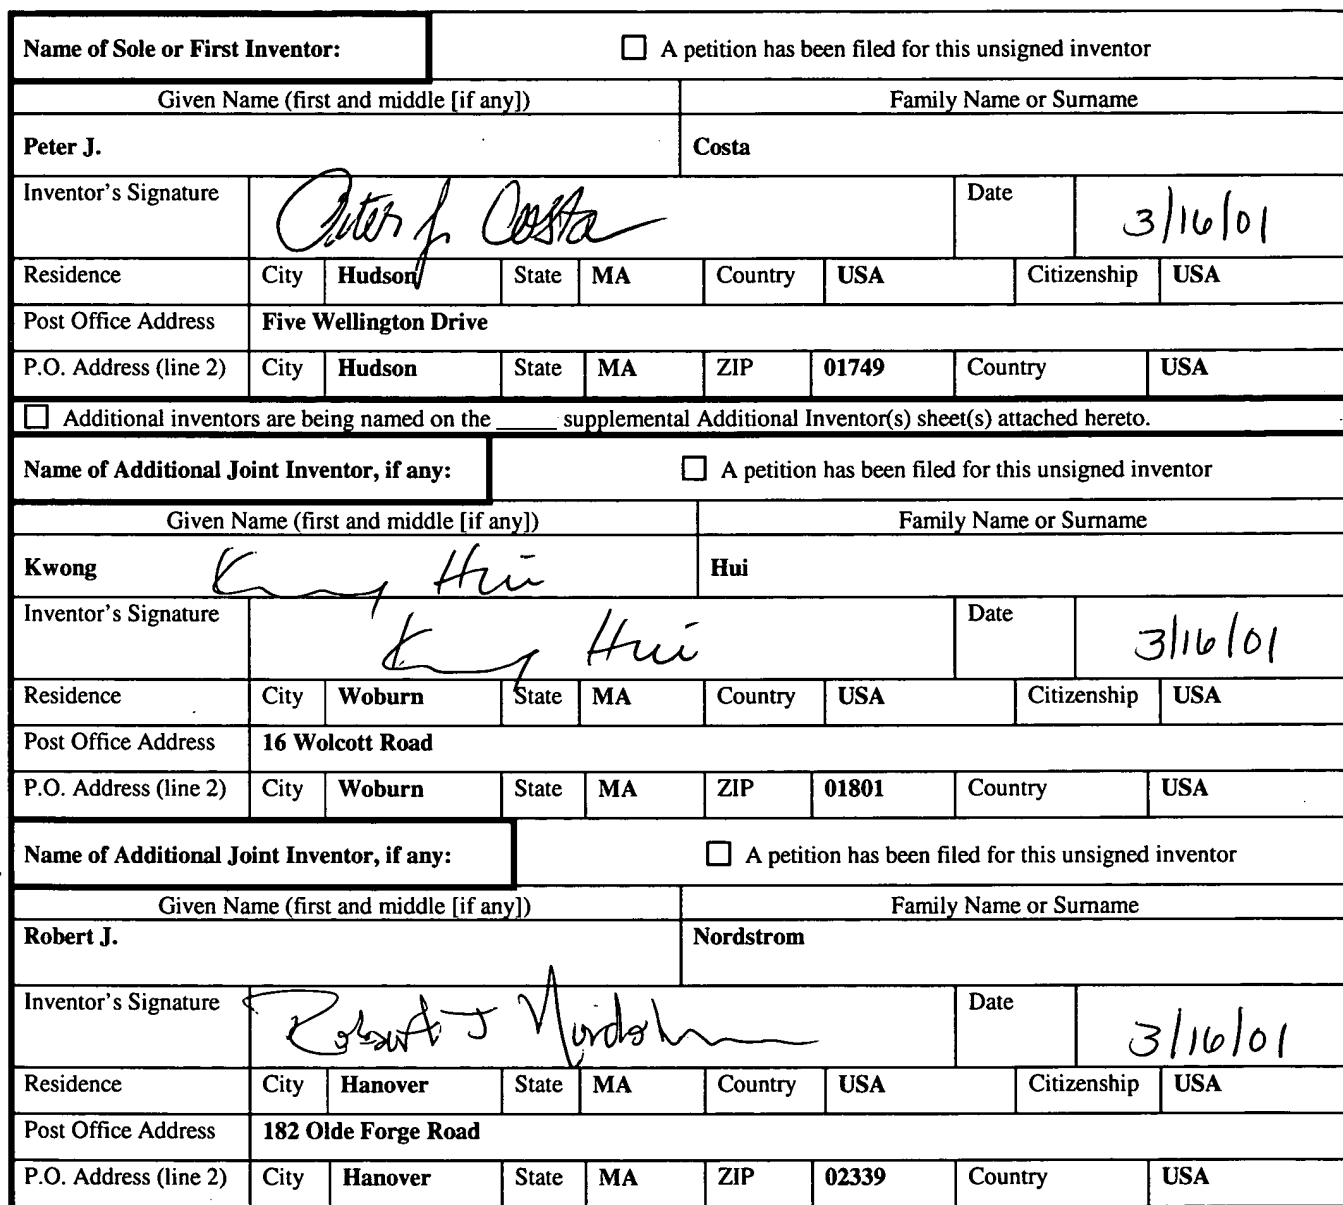 Name of Sole or First Inventor: ☐ A petition has been filed for this unsigned inventor
Given Name (first and middle [if any]) Family Name or Surname
Peter J. Costa
Inventor's Signature Peter J Costa Date 3/16/01
Residence City Hudson State MA Country USA Citizenship USA
Post Office Address Five Wellington Drive
P.O. Address (line 2) City Hudson State MA ZIP 01749 Country USA
☐ Additional inventors are being named on the _____ supplemental Additional Inventor(s) sheet(s) attached hereto.
Name of Additional Joint Inventor, if any: ☐ A petition has been filed for this unsigned inventor
Given Name (first and middle [if any]) Family Name or Surname
Kwong Kwong Hui Hui
Inventor's Signature Kwong Hui Date 3/16/01
Residence City Woburn State MA Country USA Citizenship USA
Post Office Address 16 Wolcott Road
P.O. Address (line 2) City Woburn State MA ZIP 01801 Country USA
Name of Additional Joint Inventor, if any: ☐ A petition has been filed for this unsigned inventor
Given Name (first and middle [if any]) Family Name or Surname
Robert J. Nordstrom
Inventor's Signature Robert J Nordstrom Date 3/16/01
Residence City Hanover State MA Country USA Citizenship USA
Post Office Address 182 Olde Forge Road
P.O. Address (line 2) City Hanover State MA ZIP 02339 Country USA